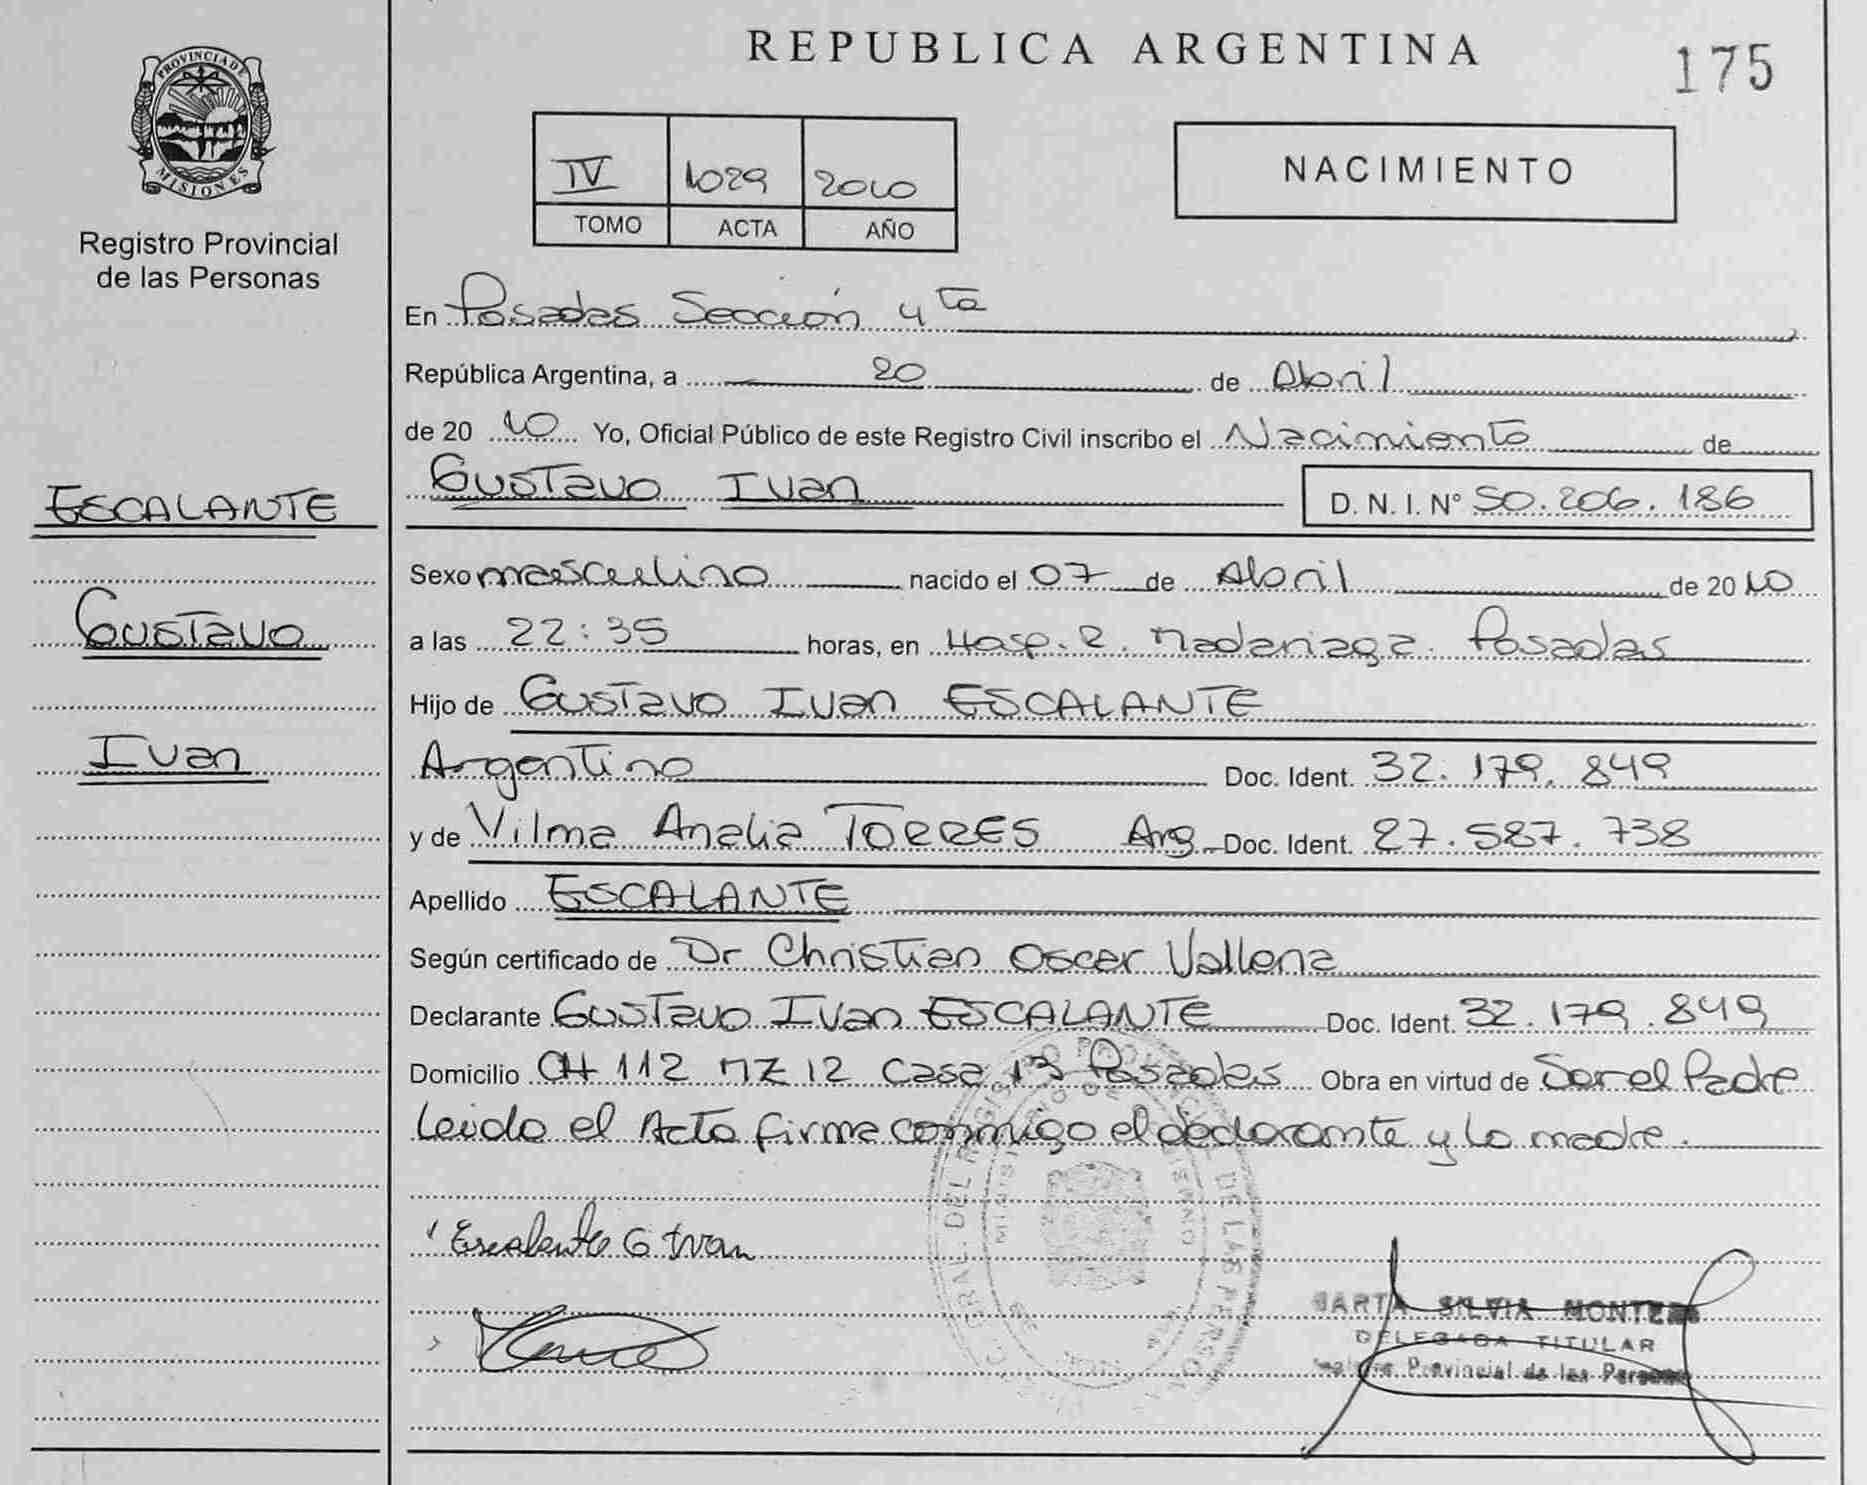 PROVINCIA DE
MISIONES
Registro Provincial
de las Personas
ESCALANTE
Gustavo
Ivan
REPUBLICA ARGENTINA
175
IV 1029 2010
TOMO ACTA AÑO
NACIMIENTO
En Posadas Sección 4ta
República Argentina, a 20 de Abril
de 20 10 Yo, Oficial Público de este Registro Civil inscribo el Nacimiento de
Gustavo Ivan D. N. I. Nº 50.206.186
Sexo masculino nacido el 07 de Abril de 20 10
a las 22:35 horas, en Hosp. R. Madariaga. Posadas
Hijo de Gustavo Ivan ESCALANTE
Argentino Doc. Ident. 32.179.849
y de Vilma Analia TORRES Arg Doc. Ident. 27.587.738
Apellido ESCALANTE
Según certificado de Dr Christian Oscar Vallena
Declarante Gustavo Ivan ESCALANTE Doc. Ident. 32.179.849
Domicilio CH 112 MZ 12 Casa 13 Posadas Obra en virtud de Ser el Padre
Leido el Acta firma conmigo el declarante y la madre.
Escalante G Ivan
SILVIA MONTE
DELEGADA TITULAR
Provincial de las Personas